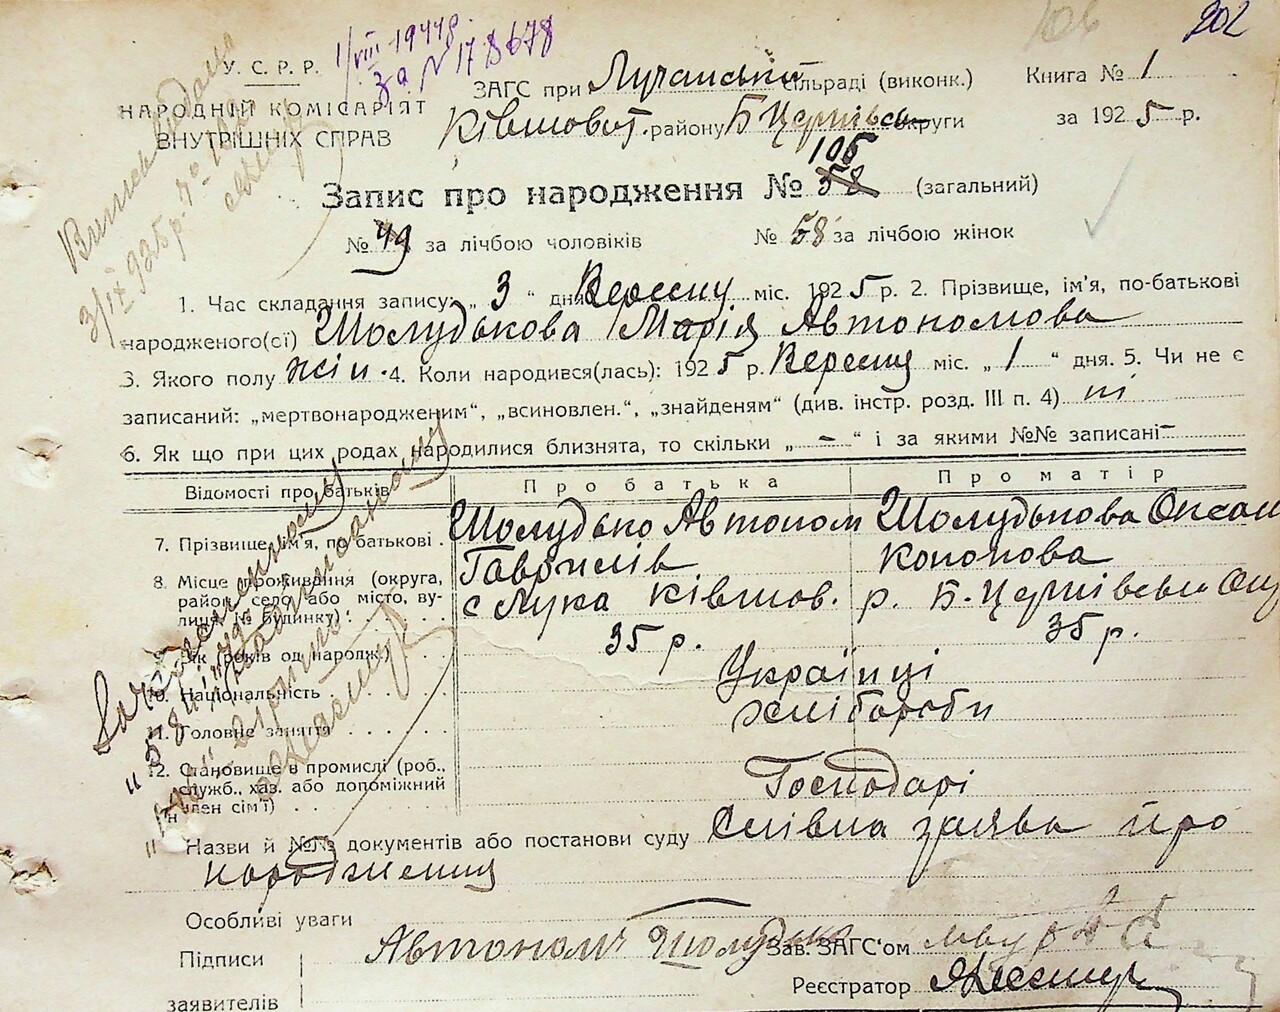 202
1/VIII 1944 8.
за N 178678
У. С. Р. Р.
НАРОДНІЙ КОМІСАРІЯТ
ВНУТРІШНІХ СПРАВ
ЗАГС при Лучанській сільраді (виконк.)
Книга № 1
Ківшоват. району Б Церківськ округи
за 1925 р.
105
Запис про народження № 58 (загальний)
№ 49 за лічбою чоловіків
№ 58 за лічбою жінок
1. Час складання запису: „ 3 “ дня Вересня міс. 1925 р. 2. Прізвище, ім'я, по-батькові
народженого(ої) Шолудькова Марія Автономова
3. Якого полу жін. 4. Коли народився(лась): 1925 р. Вересня міс. „ 1 “ дня. 5. Чи не є
записаний: „мертвонародженим“, „всиновлен.“, „знайденям“ (див. інстр. розд. III п. 4) ні
6. Як що при цих родах народилися близнята, то скільки „ – “ і за якими №№ записані –
Відомості про батьків
Про батька
Про матір
7. Прізвище, ім'я, по батькові . Шолудько Автоном Шолудькова Оксан
Гаврилів Кононова
8. Місце проживання (округа,
район, село або місто, ву-
лиця, № будинку) . . . . .
с Лука Ківшов. р. Б-Церківськ Окр
9. Вік (років од народж.) . . . 35 р. 35 р.
10. Національність . . . . . Українці
11. Головне заняття . . . . . хлібороби
12. Становище в промислі (роб.,
служб., хаз. або допоміжний
член сім'ї) . . . . . . .
Господарі
Назви й №№ документів або постанови суду Спільна заява про
народження
Особливі уваги
Підписи
заявителів
Автоном Шолудько
Зав. ЗАГС'ом
Реєстратор